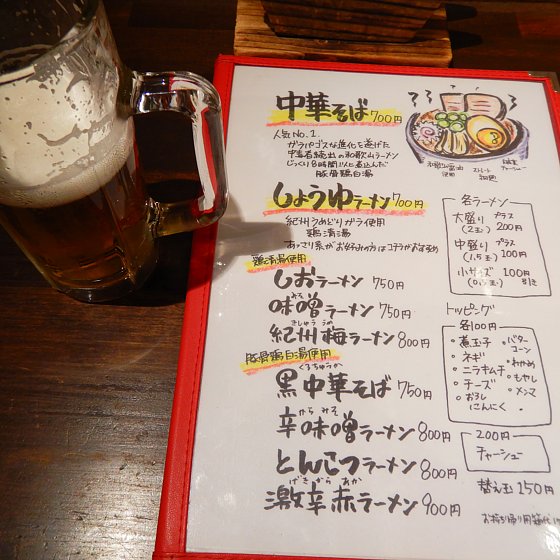 中華そば 700円
人気No.1
ガラパゴスな進化を遂げた
中毒者続出の和歌山ラーメン
じっくり8時間以上煮込んだ
豚骨鶏白湯
しょうゆラーメン 700円
紀州うめどりガラ使用
鶏清湯
あっさり系がお好みの方はコチラがおすすめ
鶏清湯使用
しおラーメン 750円
味噌ラーメン 750円
みそ
紀州梅ラーメン 800円
きしゅううめ
豚骨鶏白湯使用
黒中華そば 750円
くろちゅうか
辛味噌ラーメン 800円
からみそ
とんこつラーメン 800円
激辛赤ラーメン 900円
げきからあか
和歌山醤油
使用
ストレート
細麺
チャーシュー
各ラーメン
大盛り プラス
(2玉) 200円
中盛り プラス
(1.5玉) 100円
小サイズ 100円
(0.5玉) 引き
トッピング
各100円
・煮玉子
・ネギ
・ニラキムチ
・チーズ
・おろし
にんにく
・バター
コーン
・わかめ
・もやし
・メンマ
200円
チャーシュー
替え玉 150円
お持ち帰り用